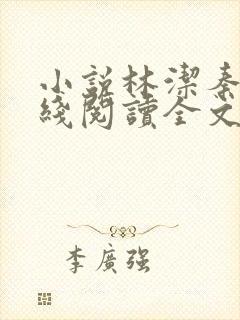 小說林潔秦
綫閱讀全文
李廣強